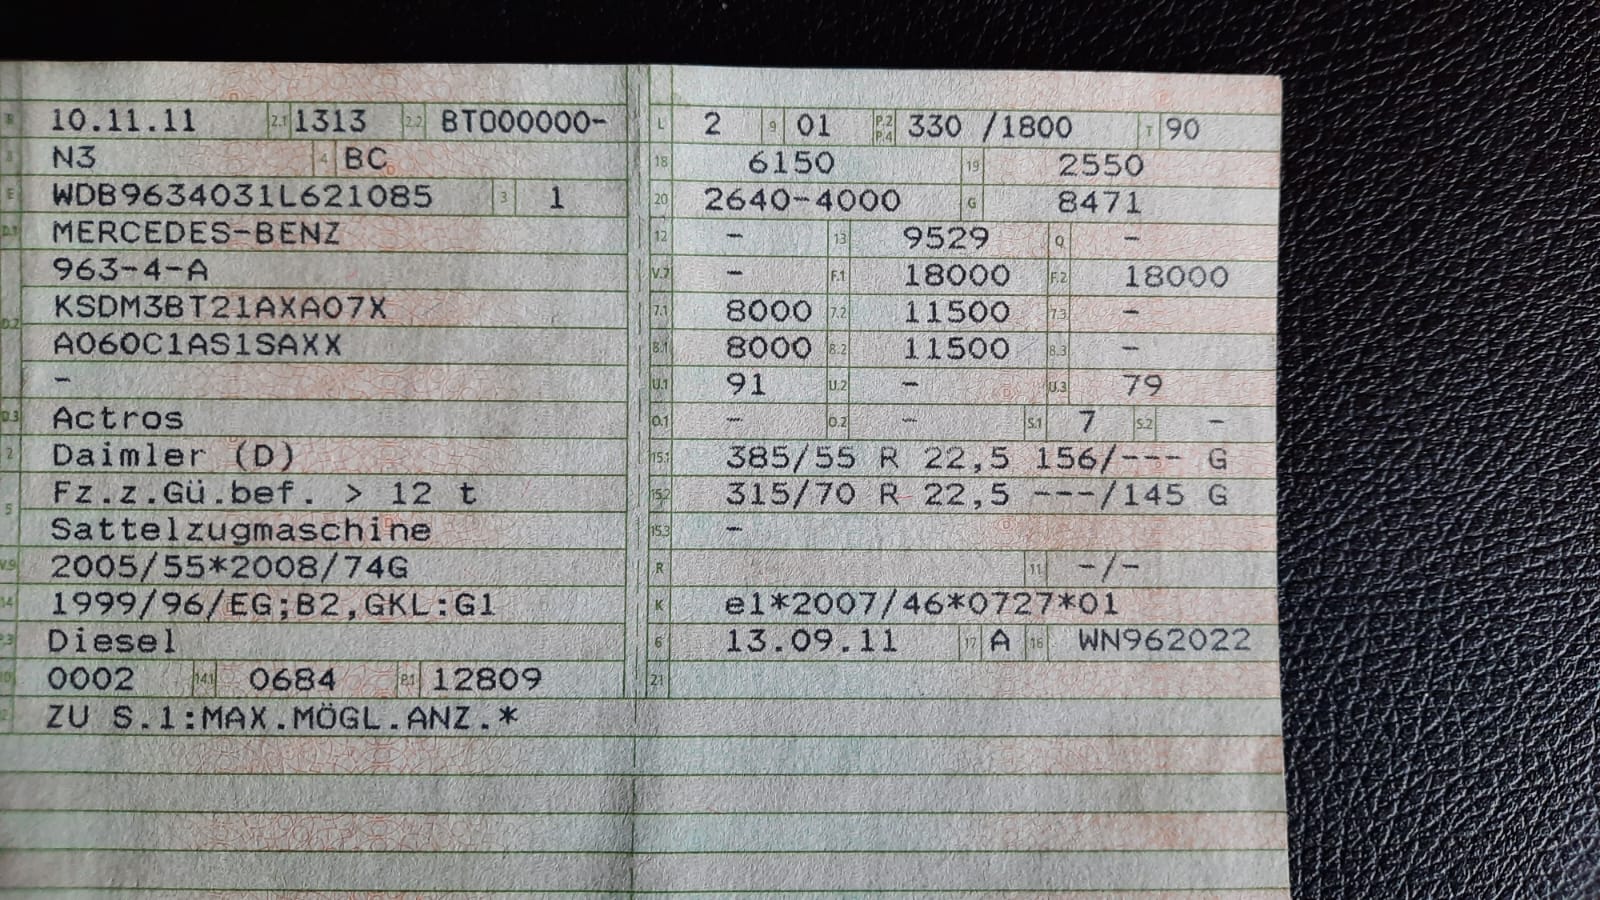 B 10.11.11 2.1 1313 2.2 BT000000-
J N3 4 BC
E WDB9634031L621085 3 1
D.1 MERCEDES-BENZ
963-4-A
D.2 KSDM3BT21AXA07X
A060C1AS1SAXX
-
D.3 Actros
2 Daimler (D)
5 Fz.z.Gü.bef. > 12 t
Sattelzugmaschine
V.9 2005/55*2008/74G
14 1999/96/EG;B2,GKL:G1
P.3 Diesel
10 0002 14.1 0684 P.1 12809
22 ZU S.1:MAX.MÖGL.ANZ.*
L 2 9 01 P.2 P.4 330 /1800 T 90
18 6150 19 2550
20 2640-4000 G 8471
12 - 13 9529 Q -
V.7 - F.1 18000 F.2 18000
7.1 8000 7.2 11500 7.3 -
8.1 8000 8.2 11500 8.3 -
U.1 91 U.2 - U.3 79
O.1 - O.2 - S.1 7 S.2 -
15.1 385/55 R 22,5 156/--- G
15.2 315/70 R 22,5 ---/145 G
15.3 -
R 11 -/-
K e1*2007/46*0727*01
6 13.09.11 17 A 16 WN962022
21